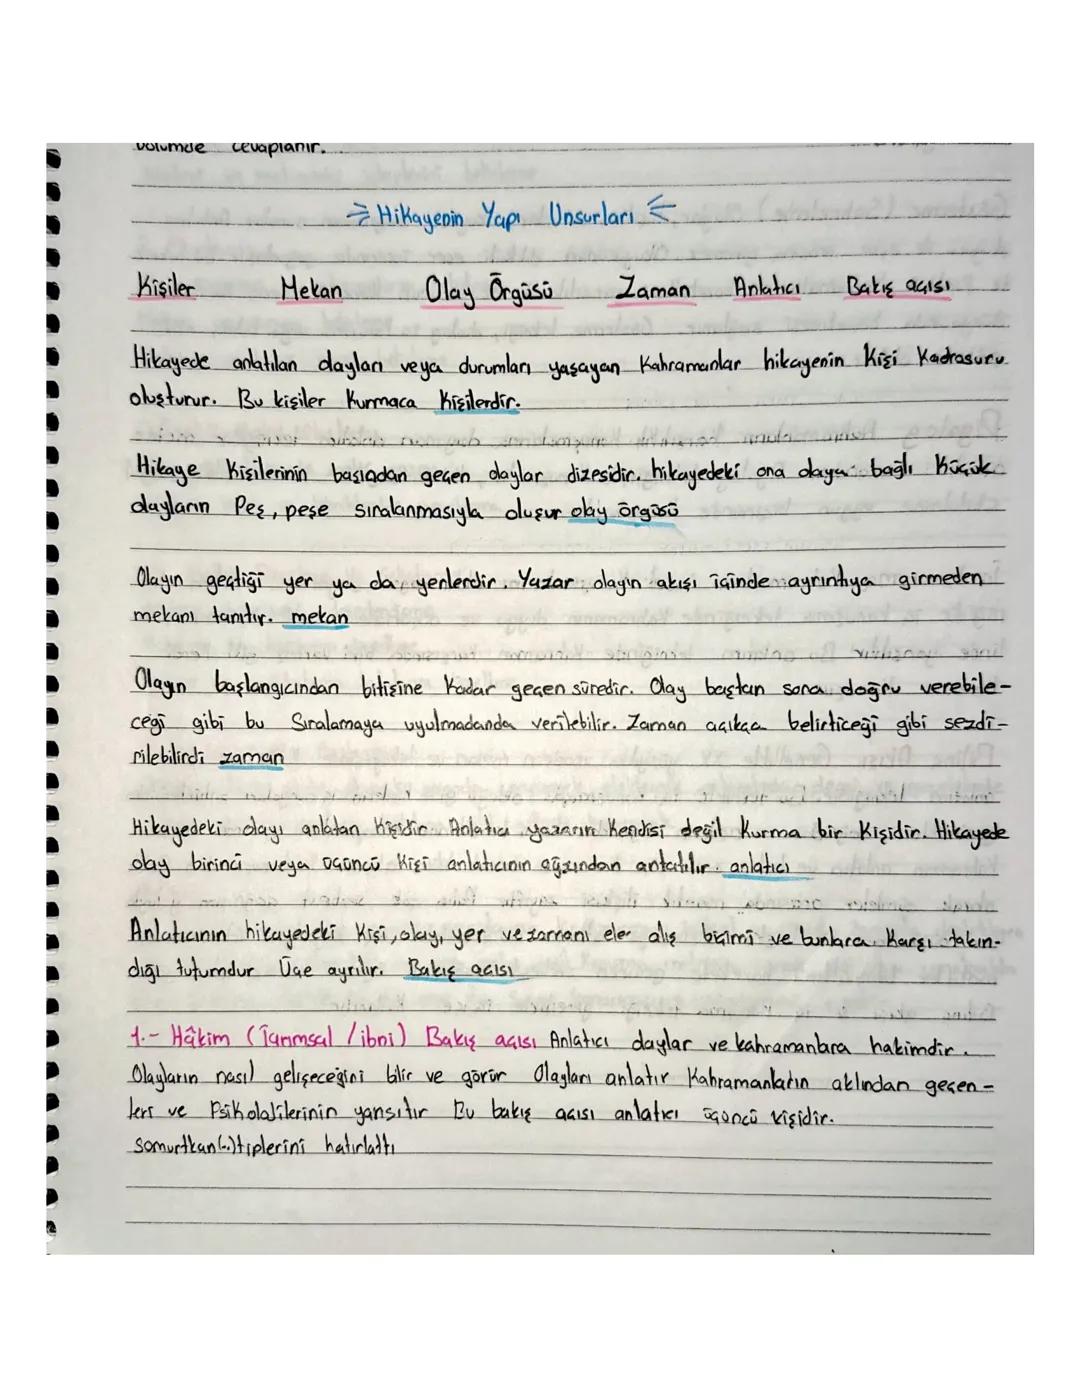 bölümde cevaplanır.
⇒ Hikayenin Yapı Unsurları ⇐
Kişiler Mekan Olay Örgüsü Zaman Anlatıcı Bakış açısı
Hikayede anlatılan olayları veya durumları yaşayan Kahramanlar hikayenin Kişi Kadrosunu
oluşturur. Bu kişiler Kurmaca Kişilerdir.
Hikaye Kişilerinin başından geçen olaylar dizesidir. hikayedeki ana olaya bağlı Küçük
olayların Peş, peşe sıralanmasıyla oluşur olay örgüsü
Olayın geçtiği yer ya da yerlerdir. Yazar olayın akışı içinde ayrıntıya girmeden
mekanı tanıtır. mekan
Olayın başlangıcından bitişine Kadar geçen süredir. Olay baştan sona doğru verebile-
ceği gibi bu Sıralamaya uyulmadanda verilebilir. Zaman açıkça belirticeği gibi sezdi-
rilebilirdi zaman
Hikayedeki olayı anlatan Kişidir. Anlatıcı yazarın Kendisi değil Kurma bir Kişidir. Hikayede
olay birinci veya üçüncü Kişi anlatıcının ağzından anlatılır. anlatıcı
Anlatıcının hikayedeki Kişi, olay, yer ve zamanı ele alış biçimi ve bunlara Karşı takın-
dığı tutumdur Üçe ayrılır. Bakış açısı
1.- Hâkim (Tanrısal / ilahi) Bakış açısı Anlatıcı olaylar ve kahramanlara hakimdir.
Olayların nasıl gelişeceğini bilir ve görür Olayları anlatır Kahramanların aklından geçen-
leri ve Psikolojilerinin yansıtır Bu bakış açısı anlatıcı üçüncü kişidir.
somurtkan(..)tiplerini hatırlattı